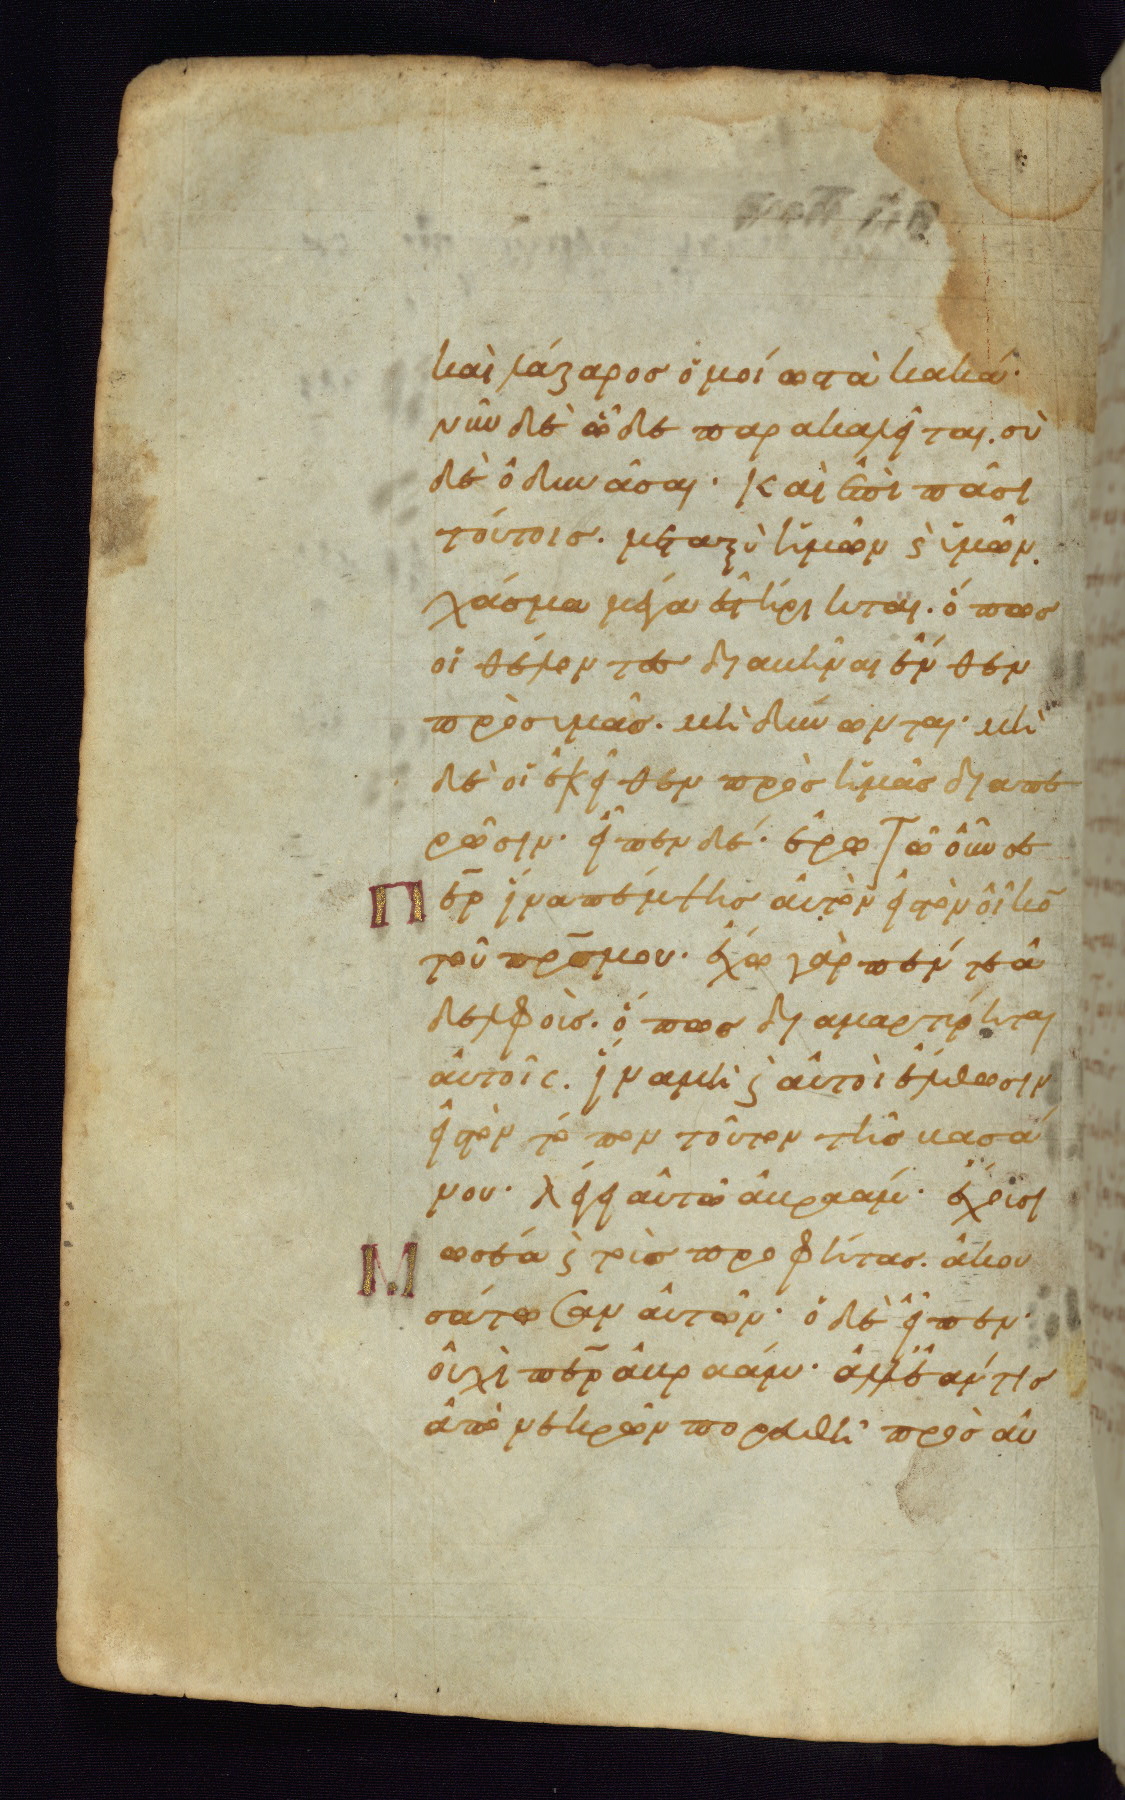 καὶ λάζαρος ὁμοίως τὰ κακά·
νῦν δὲ ὧδε παρακαλεῖται. σὺ
δὲ ὀδυνᾶσαι· Καὶ ἐπὶ πᾶσι
τούτοις. μεταξὺ ἡμῶν ϛ ὑμῶν.
χάσμα μέγα ἐστήρικται. ὅπως
οἱ θέλοντες διαβῆναι ἔνθεν
πρὸς ὑμᾶς. μὴ δύνωνται· μὴ
δὲ οἱ ἐκεῖθεν πρὸς ἡμᾶς διαπε
ρῶσιν· εἶπεν δέ· ἐρωτῶ οὖν σε
Πε̅ρ ἵνα πέμψης αὐτὸν εἰς τὸν οἶκο̅
τοῦ πρ̅ς μου· ἔχω γὰρ πέντε ἀ
δελφοὺς. ὅπως διαμαρτύρηται
αὐτοῖς. ἵνα μὴ ϛ αὐτοὶ ἔλθωσιν
εἰς τὸν τόπον τοῦτον τῆς βασά
νου· λέγει αὐτῶ ἀβραάμ· ἔχουσι
Μωσέα ϛ τοὺς προφήτας. ἀκου
σάτωσαν αὐτῶν· ὁ δὲ εἶπεν·
οὐχὶ πε̅ρ ἀβραάμ· ἀλλ' ἐάν τις
ἀπὸ νεκρῶν πορευθῆ πρὸς αὐ